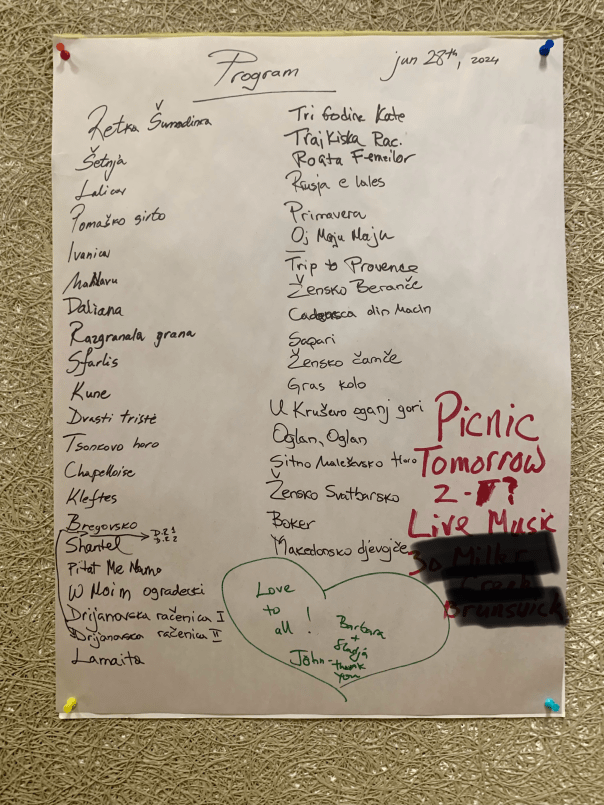 Program
jun 28th, 2024
Šetnja
Pomaško girto
Ivanica
Daliana
Razgranala grana
Sfarlis
Kune
Dvasti tristė
Tsonkovo horo
Chapelloise
Kleftes
Bregovsko
D.R 1
D.R 2
Shantel
Pitat Me Namo
W Moim ogradecki
Drijanovska račenica I
Drijanovska račenica II
Lamaita
Tri Godine Kate
Trajkiska Rac.
Roata Femeilor
Rusja e lales
Primavera
Oj Maju Maju
Trip to Provence
Žensko Beranče
Cadeneasca din Macin
Sapari
Žensko čamče
Gras kolo
U Kruševo oganj gori
Oglan, Oglan
Sitno Maleševsko Horo
Žensko Svatbarsko
Boker
Makedonsko djevojče
Picnic
Tomorrow
2-
Live Music
Love
to
all!
Barbara
+
John -
thank
you